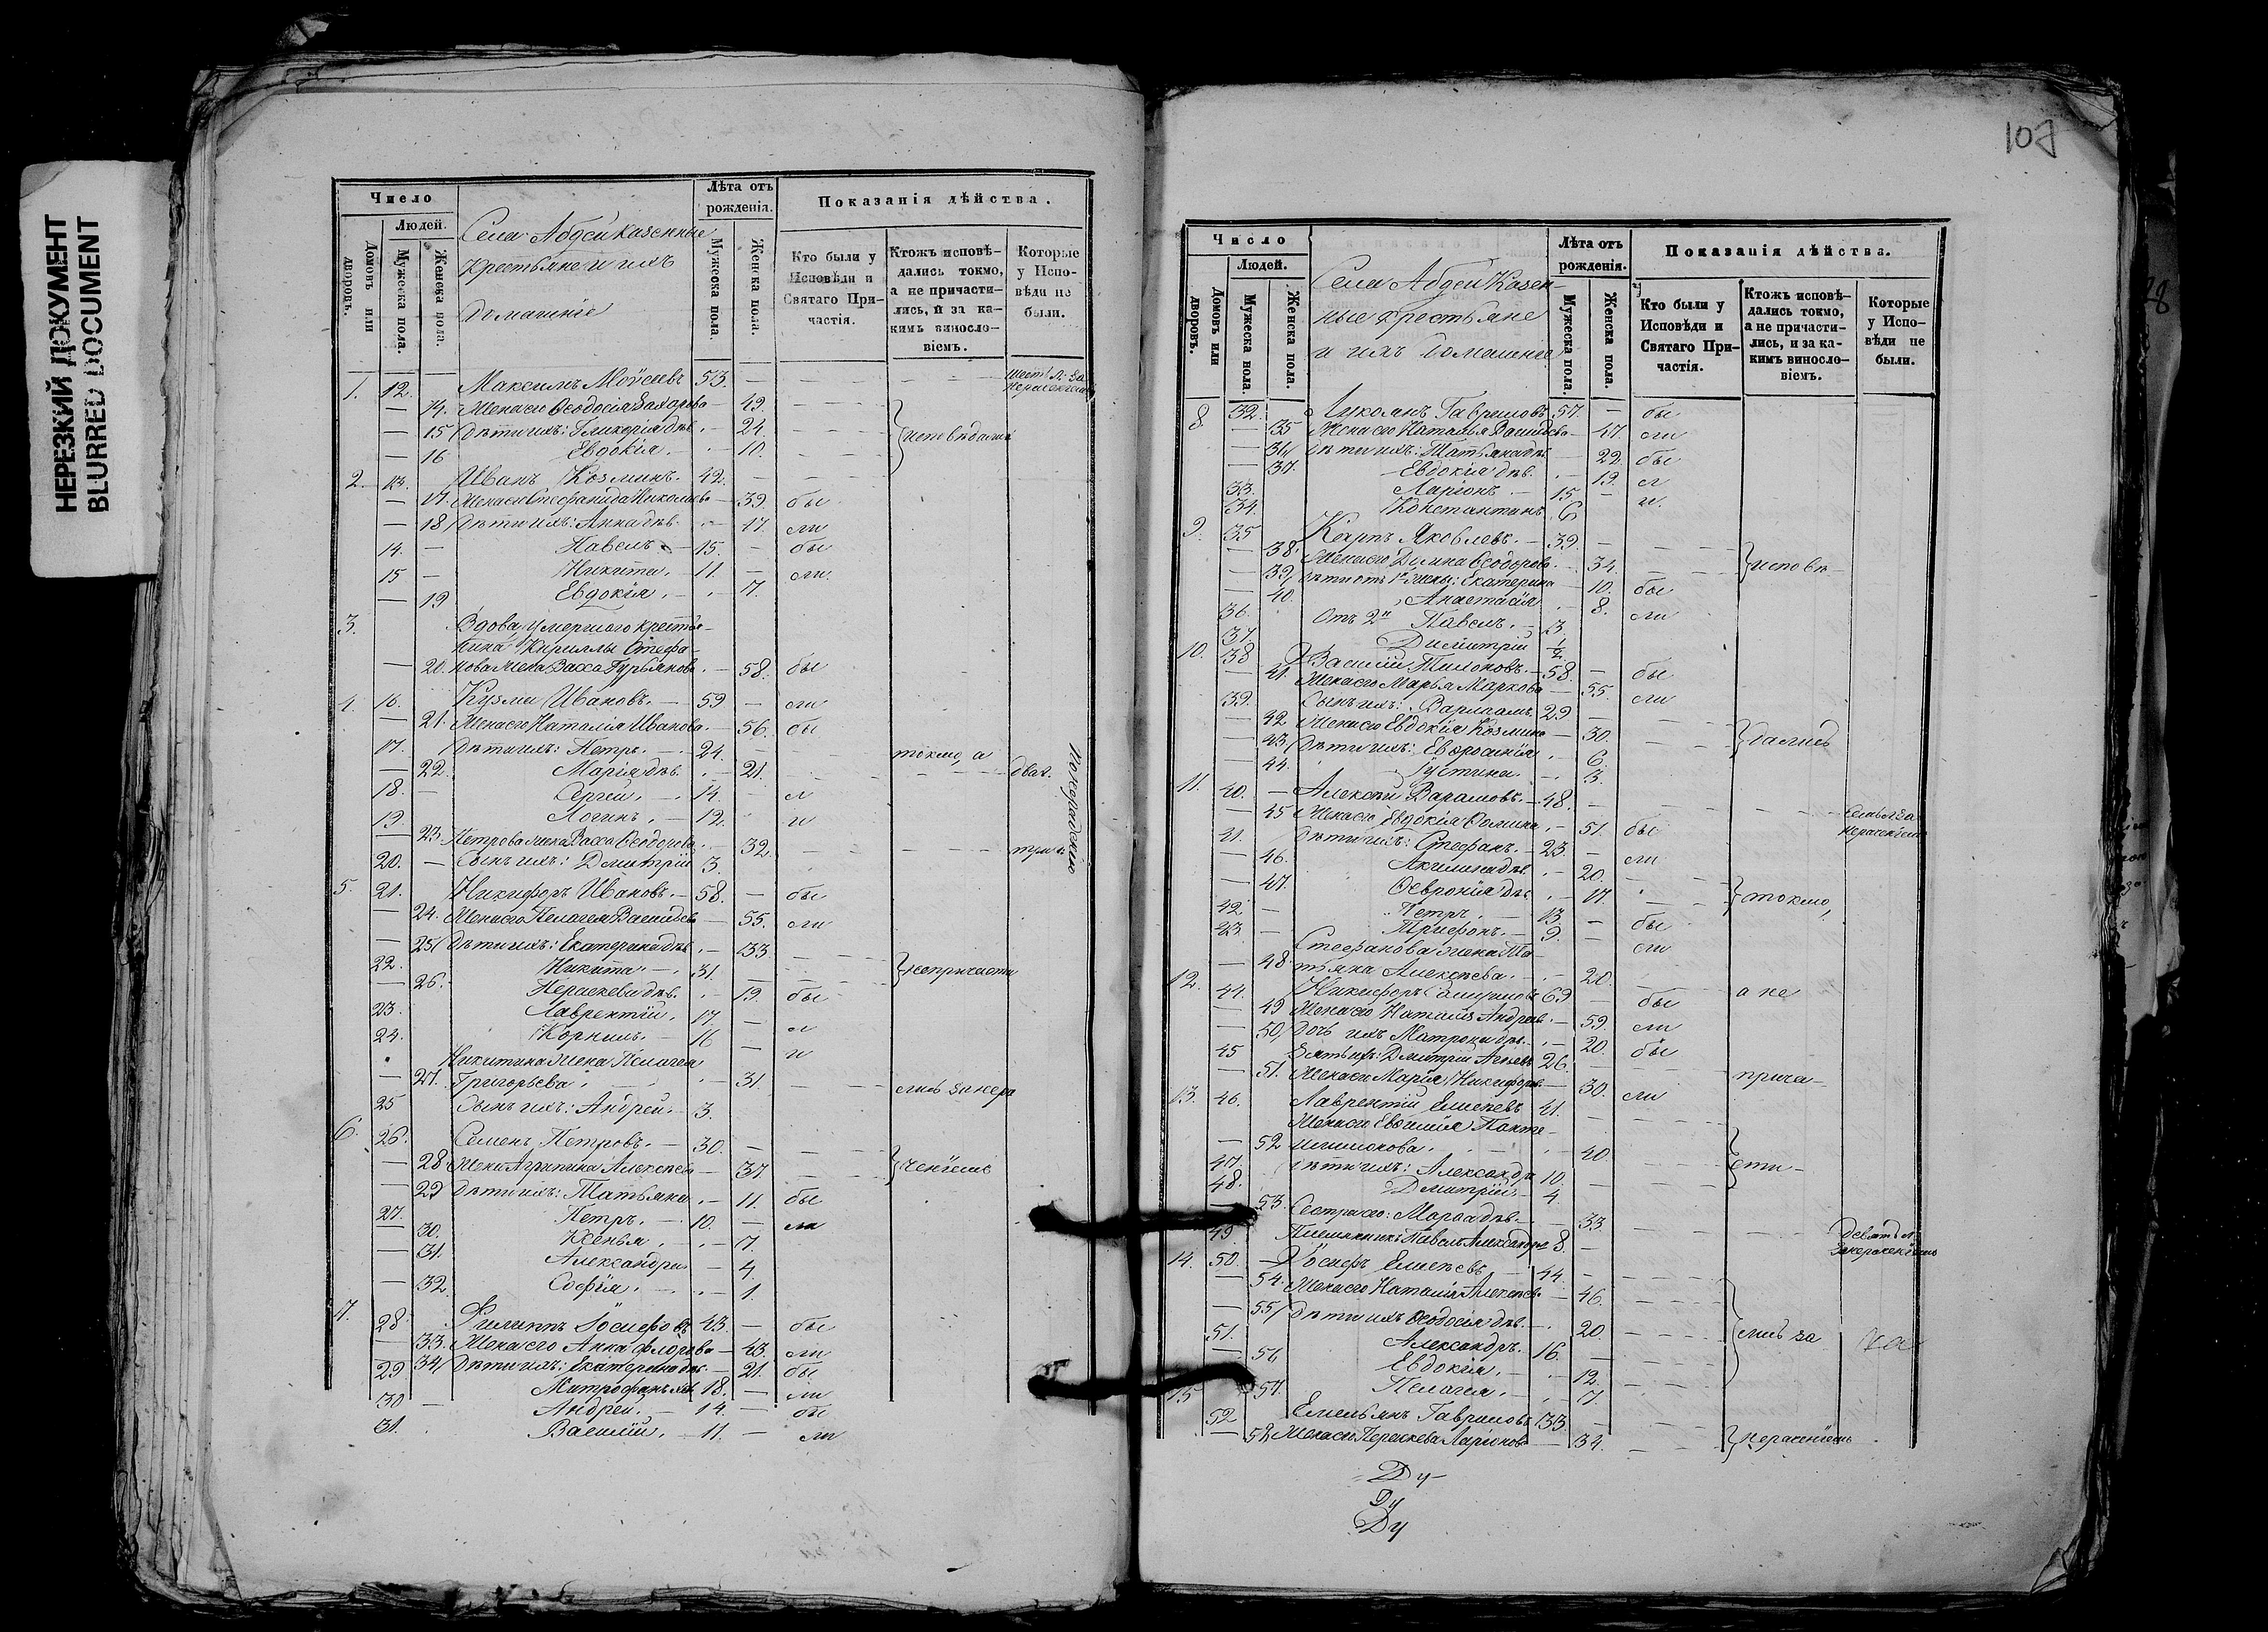 НЕРЕЗКИЙ ДОКУМЕНТ
BLURRED DOCUMENT
Число
Людей.
Домовъ или дворовъ.
Мужеска пола.
Женска пола.
Села Абдеи казенные
крестьяне и ихъ
домашніе
Лѣта отъ рожденія.
Мужеска пола.
Женска пола.
Показанія дѣйства.
Кто были у Исповѣди и Святаго Причастія.
Ктожъ исповѣдались токмо, а не причастились, и за какимъ винословіемъ.
Которые у Исповѣди не были.
1. 12. Максимъ Моѵсеевъ 53. —
— 14. Жена его Ѳеодосія Захарова — 49.
— 15 Дѣти ихъ: Гликерія дѣв. — 24. исповѣдали
— 16 Евдокія. — 10.
2. 13. Иванъ Козминъ. 42. —
— 17. Жена его Стефанида Николаева — 39. бы
— 18 Дѣти ихъ: Анна дѣв. — 17. ли
14. — Павелъ — 15. — бы
15 — Никита. — 11. — ли.
— 19 Евдокія. — 7.
3. Вдова умершаго крестья-
нина Кириллы Стефа-
— 20. нова жена Васса Гурьянова. — 58. бы
4. 16. Кузма Ивановъ. — 59 — ли
— 21. Жена его Наталія Иванова. — 56. бы
17. Дѣти ихъ: Петръ. — 24. — токмо, а
— 22. Марія дѣв. — 21. два г.
18. — Сергей. — 14. — л
19. — Логинъ. — 12. и
— 23. Петрова жена Васса Ѳеодорова. 32. — три г.
20. — Сынъ ихъ: Дмитрій 3.
5. 21. Никифоръ Ивановъ. — 58. — бы
— 24. Жена его Пелагея Васильева — 55. ли
— 25 Дѣти ихъ: Екатерина дѣв. — 33.
22. Никита. — 31. — непричасти
— 26. Параскева дѣв. — 19. бы
23. Лаврентій. 17. — л
24. Корнилъ. — 16 — и
Никитина жена Пелагея
— 27. Григорьева. — 31. — лись за нера
25 Сынъ ихъ: Андрей. 3.
6. 26. Семенъ Петровъ. — 30. —
— 28 Жена Агрипина Алексѣева — 37. — ченіемъ
— 29 Дѣти ихъ: Татьяна. — 11. бы
27. Петръ. — 10. — ли
— 30. Ксенья. — 7.
— 31. Александра — 4.
— 32. Софія. — 1.
7. 28. Филиппъ Іосифовъ 43. — бы
— 33. Жена его Анна Флорова — 43. ли
29 34 Дѣти ихъ: Екатерина дѣв. — 21. бы
Митрофанъ 18. — ли
30 — Андрей. — 14. — бы
31. Василій. — 11. — ли
107
Число
Людей.
Домовъ или дворовъ.
Мужеска пола.
Женска пола.
Села Абдеи Казен-
ные крестьяне
и ихъ домашніе
Лѣта отъ рожденія.
Мужеска пола
Женска пола.
Показанія дѣйства.
Кто были у Исповѣди и Святаго Причастія.
Ктожъ исповѣдались токмо, а не причастились, и за какимъ винословіемъ.
Которые у Исповѣди не были.
8 32. Гавриловъ 57. — бы
— 35 Жена его Наталья Васильева — 47. ли
— 36 Дѣти ихъ: Татьяна дѣв. — 22. бы
— 37. Евдокія дѣв. — 19. л
33. Ларіонъ. — 15 — и.
34. Константинъ 6
9. 35 Карпъ Яковлевъ. — 39. —
— 38. Жена его Ѳеодорова — 34. исповѣ-
— 39 Дѣти отъ 1й жены: Екатерина — 10. бы
— 40. Анастасія — 8. ли
36. Отъ 2й Павелъ. — 3.
37. Димитрій ½
10. 38 Василій Тихоновъ. — 58. — бы
— 41. Жена его Марья Маркова — 55. ли
39. Сынъ ихъ: Варлаамъ 29 —
— 42 Жена его Евдокія Козмина — 30. дались
— 43. Дѣти ихъ: Евфросинія. — 6.
— 44. Іустина. — 3.
11. 40. — Алексѣй Варламовъ. — 48. —
— 45 Жена его Евдокія Ѳомина. — 51. бы
41. Дѣти ихъ: Стефанъ. — 23. — ли
— 46. Акилина дѣв. — 20.
— 47. Февронія дѣв. — 17 токмо,
42 — Петръ. — 13. — бы
43. — Трифонъ. — 9. — ли
Стефанова жена Та-
— 48 тьяна Алексѣева. — 20. —
12. 44. Никифоръ 69 — бы а не
— 49 Жена его Наталія Андреева. — 59. ли
— 50 Дочь ихъ Матрона дѣв. — 20. бы
45 Зять ихъ: Дмитрій 26. —
— 51. Жена его Марія Никифорова — 30. ли прича-
13. 46. Лаврентій Елисеевъ 41. —
Жена его Евфимія Панте-
— 52 леимонова. — 40.
47. Дѣти ихъ: Александръ 10. — сти-
48. Дмитрій — 4.
— 53. Сестра его: Марѳа дѣв. — 33.
49. Племянникъ Павелъ Александровъ 8. —
14. 50. — Іосифъ Елисеевъ — 44. —
— 54. Жена его Наталія Алексѣева — 46.
— 55 Дѣти ихъ Ѳеодосія дѣв. — 20.
51. Александръ. 16. — лись за
— 56 Евдокія. — 12.
— 57. Пелагея. — 7.
15 52 Емельянъ Гавриловъ 33 —
— 58 Жена его Параскева Ларіонова — 34. нераченіемъ
Ду-
Ду
Ду